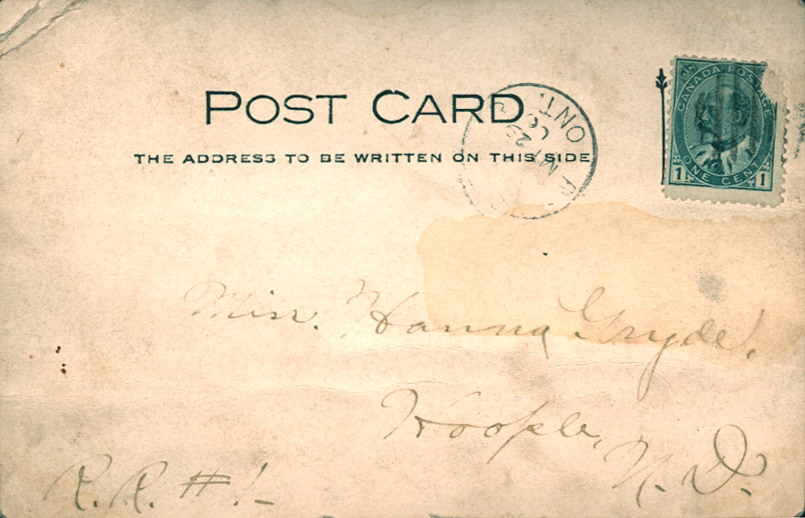 POST CARD
THE ADDRESS TO BE WRITTEN ON THIS SIDE
ONT
MY 25
CANADA POSTAGE
1 ONE CENT 1
Miss. Hanna Gryde,
Hoople, N. D.
R. R. #1-